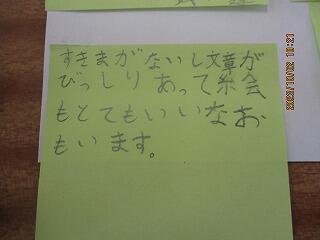 すきまがないし文章が
びっしりあって糸会
もとてもいいなお
もいます。